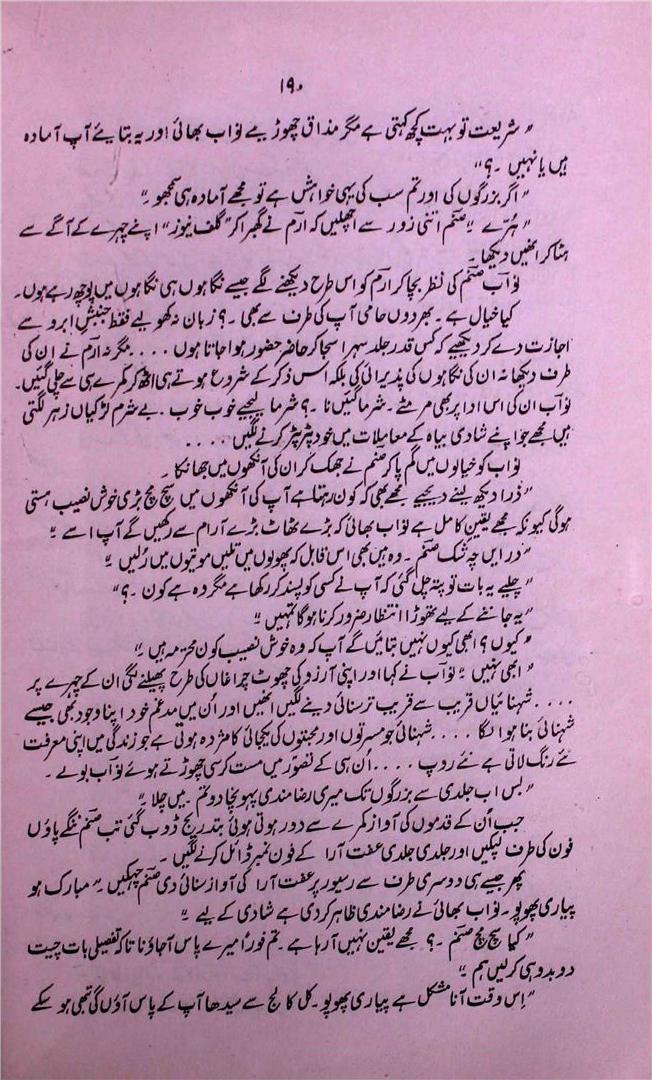 ۱۹۰
"شریعت تو بہت کچھ کہتی ہے مگر مذاق چھوڑیے نواب بھائی اور یہ بتایئے آپ آمادہ
ہیں یا نہیں ۔؟"
"اگر بزرگوں کی اور تم سب کی یہی خواہش ہے تو مجھے آمادہ ہی سمجھو ۔"
"ہُرّے ۔" صنم اتنی زور سے اچھلیں کہ ارم نے گھبرا کر "گلف نیوز" اپنے چہرے کے آگے سے
ہٹا کر انھیں دیکھا ۔
نواب صنم کی نظر بچا کر ارم کو اس طرح دیکھنے لگے جیسے نگاہوں ہی نگاہوں میں پوچھ رہے ہوں۔
کیا خیال ہے ۔ بھر دوں حامی آپ کی طرف سے بھی ۔؟ زبان نہ کھولیے فقط جنبشِ ابرو سے
اجازت دے کر دیکھیے کہ کس قدر جلد سہرا سجا کر حاضر حضور ہوا جاتا ہوں .... مگر نہ ارم نے ان کی
طرف دیکھا نہ ان کی نگاہوں کی پذیرائی کی بلکہ اس ذکر کے شروع ہوتے ہی اٹھ کر کمرے ہی سے چلی گئیں۔
نواب ان کی اس ادا پر بھی مر مٹے ۔ شرما گئیں نا ۔؟ شرما لیجیے خوب خوب ۔ بے شرم لڑکیاں زہر لگتی
ہیں مجھے جو اپنے شادی بیاہ کے معاملات میں خود پٹر پٹر کرنے لگیں ....
نواب کو خیالوں میں گم پا کر صنم نے جھک کر ان کی آنکھوں میں جھانکا ۔
"ذرا دیکھ لینے دیجیے مجھے بھی کہ کون رہتا ہے آپ کی آنکھوں میں سچ مچ بڑی خوش نصیب ہستی
ہوگی کیونکہ مجھے یقینِ کامل ہے نواب بھائی کہ بڑے ٹھاٹ بڑے آرام سے رکھیں گے آپ اسے ۔"
"در ایں چہ شک صنم ۔ وہ ہیں بھی اس قابل کہ پھولوں میں تلیں موتیوں میں رُلیں ۔"
"چلیے یہ بات تو پتہ چل گئی کہ آپ نے کسی کو پسند کر رکھا ہے مگر وہ ہے کون ۔؟"
"یہ جاننے کے لیے تھوڑا انتظار ضرور کرنا ہوگا تمہیں ۔"
"کیوں؟ ابھی کیوں نہیں بتائیں گے آپ کہ وہ خوش نصیب کون محترمہ ہیں ۔"
"ابھی نہیں ۔" نواب نے کہا اور اپنی آرزو کی چھوٹ چراغاں کی طرح پھیلنے لگی ان کے چہرے پر
.... شہنائیاں قریب سے قریب تر سنائی دینے لگیں انھیں اور اُن میں مدغم خود اپنا وجود بھی جیسے
شہنائی بنا ہوا لگا .... شہنائی جو مسرتوں اور محبتوں کی یکجائی کا مژدہ ہوتی ہے جو زندگی میں اپنی معرفت
نئے رنگ لاتی ہے نئے روپ .... اُن ہی کے تصور میں مست کرسی چھوڑتے ہوئے نواب بولے ۔
"بس اب جلدی سے بزرگوں تک میری رضامندی پہونچا دو تم ۔ میں چلا ۔"
جب اُن کے قدموں کی آواز کمرے سے دور ہوتی ہوئی بتدریج ڈوب گئی تب صنم ننگے پاؤں
فون کی طرف لپکیں اور جلدی جلدی عفت آرا کے فون نمبر ڈائل کرنے لگیں ۔
پھر جیسے ہی دوسری طرف سے رسیور پر عفت آرا کی آواز سنائی دی صنم چہکیں ۔ "مبارک ہو
پیاری پھوپو ۔ نواب بھائی نے رضامندی ظاہر کر دی ہے شادی کے لیے ۔"
"کیا سچ مچ صنم ۔؟ مجھے یقین نہیں آ رہا ہے ۔ تم فوراً میرے پاس آجاؤ نا تاکہ تفصیلی بات چیت
دو بدو ہی کر لیں ہم ۔"
"اِس وقت آنا مشکل ہے پیاری پھوپو ۔ کل کالج سے سیدھا آپ کے پاس آؤں گی تبھی ہو سکے